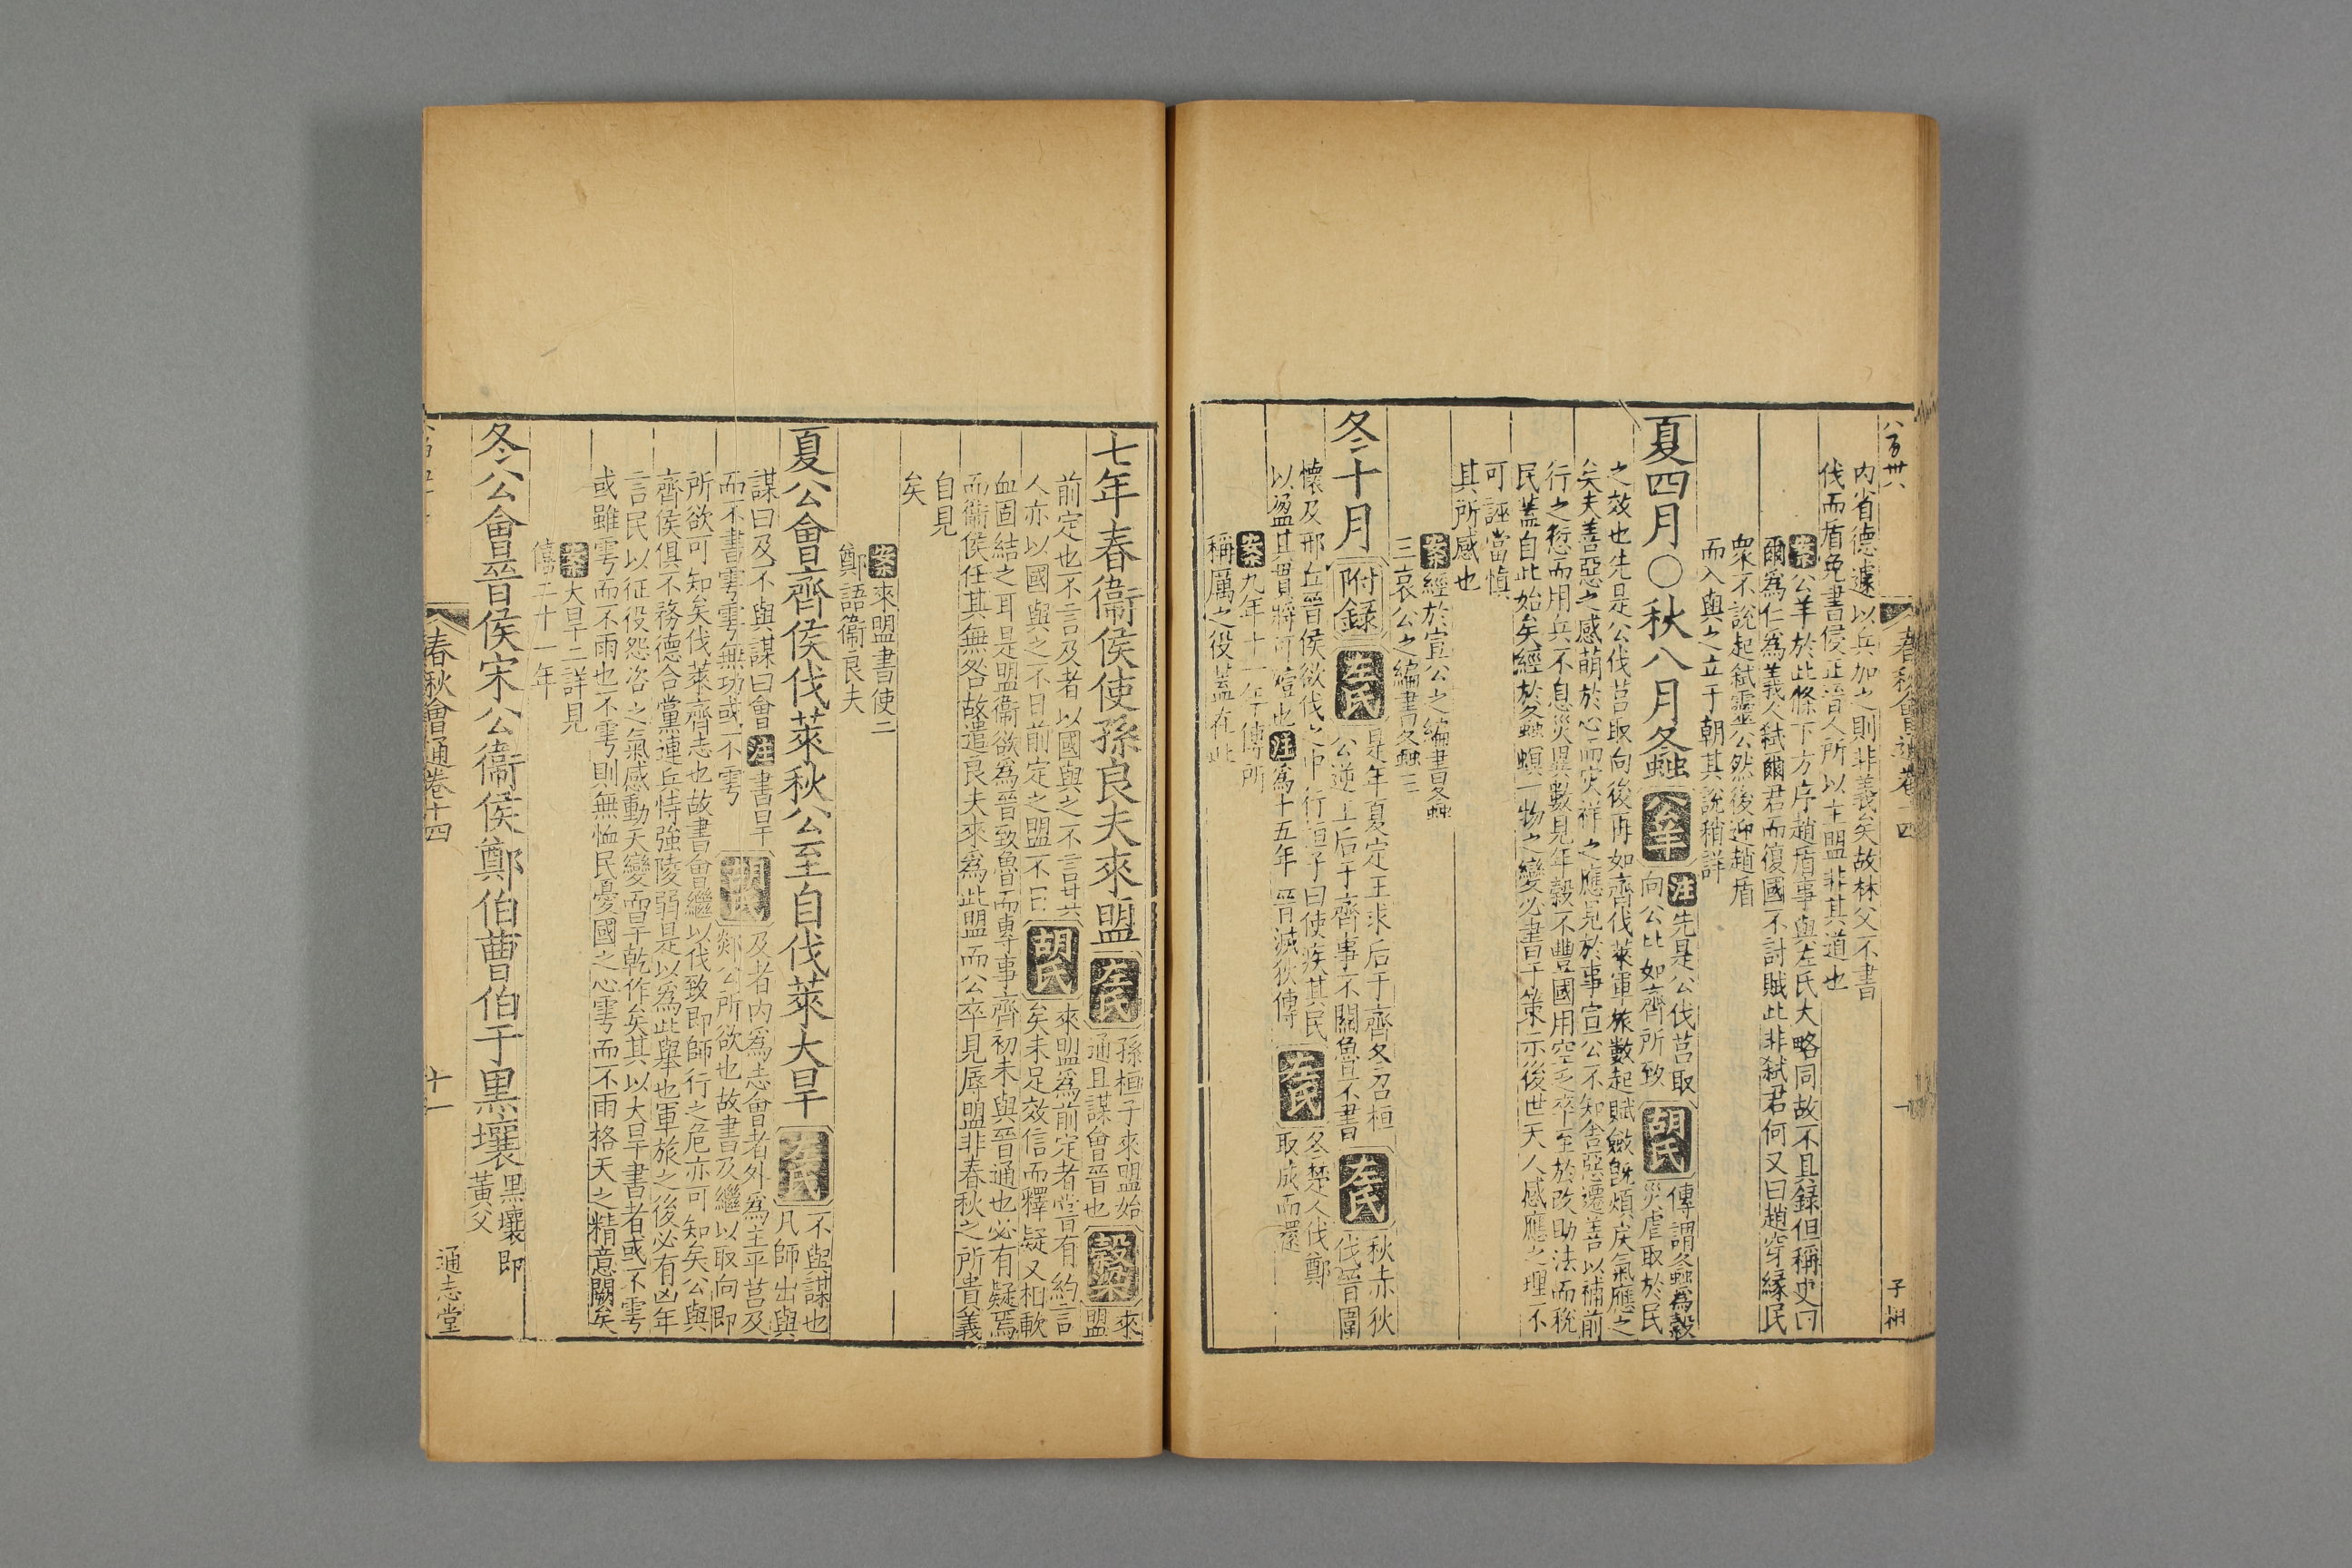 八百卅六
春秋會通卷十四
子和
內省德遽以兵加之則非義矣故林父不書
伐而盾免書侵正晉人所以主盟非其道也
案公羊於此條下方序趙盾事與左氏大略同故不具録但稱史曰
爾爲仁爲義人弒爾君而復國不討賊此非弒君何又曰趙穿縁民
衆不說起弒靈公然後迎趙盾
而入與之立于朝其說稍詳
夏四月○秋八月螽公羊注先是公伐莒取
向公比如齊所致胡氏傳謂螽爲穀
災虐取於民
之效也先是公伐莒取向後再如齊伐萊軍旅數起賦斂旣煩戾氣應之
矣夫善惡之感萌於心而灾祥之應見於事宣公不知舍惡遷善以補前
行之愆而用兵不息災異數見年穀不豐國用空乏卒至於改助法而稅
民蓋自此始矣經於螽螟一物之變必書于策示後世天人感應之理不
可誣當慎
其所感也
案經於宣公之編書螽
三哀公之編書螽三
冬十月附録左氏是年夏定王求后于齊冬召桓
公逆王后于齊事不關魯不書左氏秋赤狄
伐晉圍
懷及邢丘晉侯欲伐之中行桓子曰使疾其民
以盈其貫將可殪也注爲十五年晉滅狄傳左氏冬楚人伐鄭
取成而還
案九年十一年傳所
稱厲之役蓋在此
七年春衞侯使孫良夫來盟左氏孫桓子來盟始
通且謀會晉也穀梁來
盟
前定也不言及者以國與之不言其
人亦以國與之不日前定之盟不日胡氏來盟爲前定者嘗有約言
矣未足效信而釋疑又相歃
血固結之耳是盟衞欲爲晉致魯而專事齊初未與晉通也必有疑焉
而衞侯任其無咎故遣良夫來爲此盟而公卒見辱盟非春秋之所貴義
自見
矣
案來盟書使二
鄭語衞良夫
夏公會齊侯伐萊秋公至自伐萊大旱左氏不與謀也
凡師出與
謀曰及不與謀曰會注書旱
而不書雩雩無功或不雩胡氏及者內爲志會者外爲主平莒及
郯公所欲也故書及繼以取向即
所欲可知矣伐萊齊志也故書會繼以伐致即師行之危亦可知矣公與
齊侯俱不務德合黨連兵恃強陵弱是以爲此舉也軍旅之後必有凶年
言民以征役怨咨之氣感動天變而旱乾作矣其以大旱書者或不雩
或雖雩而不雨也不雩則無恤民憂國之心雩而不雨格天之精意闕矣
案大旱二詳見
僖二十一年
冬公會晉侯宋公衞侯鄭伯曹伯于黑壤黑壤即
黃父
春秋會通卷十四
十一
通志堂